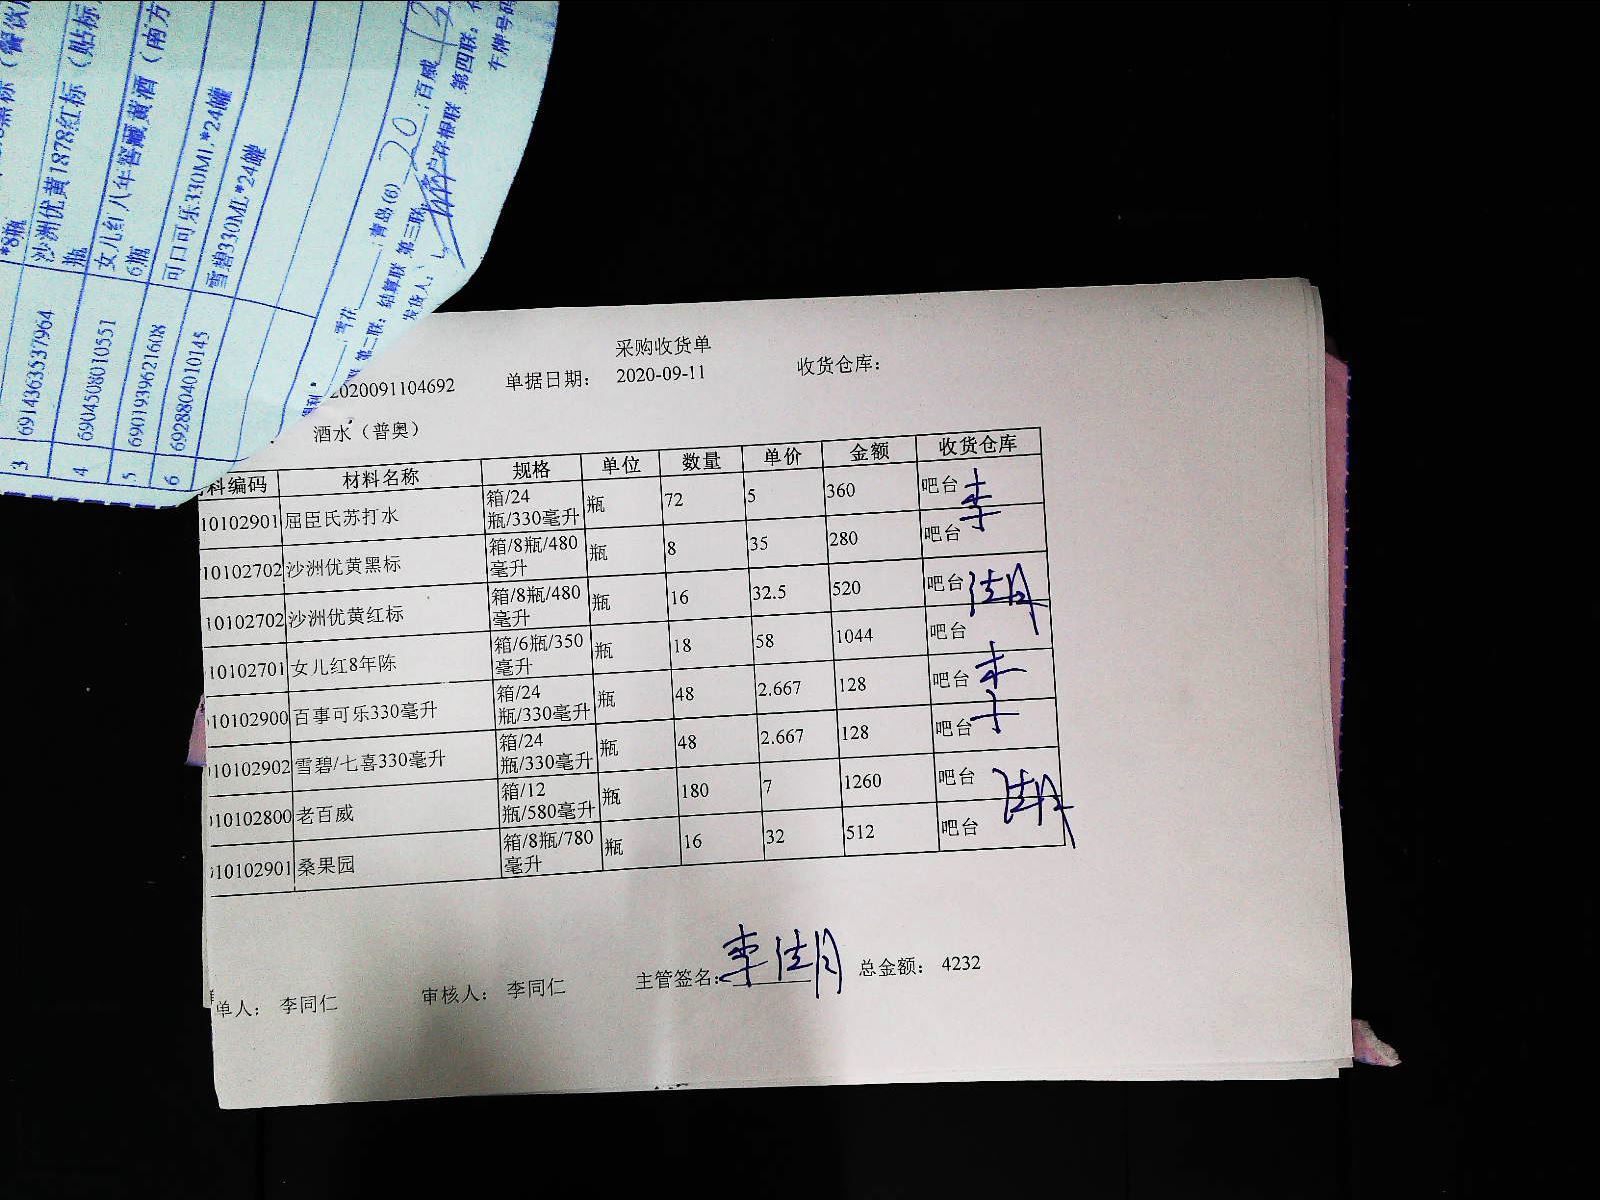 *8瓶
沙洲优黄1878红标（贴标
瓶
女儿红八年窖藏黄酒（南方
6瓶
可口可乐330ML*24罐
雪碧330ML*24罐
3 6914363537964
4 6904508010551
5 6901939621608
6 6928804010145
雪花 ；青岛(6) 20 ；百威 13
第二联：结算联 第三联： 客户存根联 第四联：
发货人：
车牌号码
采购收货单
2020091104692 单据日期： 2020-09-11 收货仓库：
酒水（普奥）
料编码 材料名称 规格 单位 数量 单价 金额 收货仓库
10102901 屈臣氏苏打水 箱/24瓶/330毫升 瓶 72 5 360 吧台
10102702 沙洲优黄黑标 箱/8瓶/480毫升 瓶 8 35 280 吧台
10102702 沙洲优黄红标 箱/8瓶/480毫升 瓶 16 32.5 520 吧台
10102701 女儿红8年陈 箱/6瓶/350毫升 瓶 18 58 1044 吧台
10102900 百事可乐330毫升 箱/24瓶/330毫升 瓶 48 2.667 128 吧台
10102902 雪碧/七喜330毫升 箱/24瓶/330毫升 瓶 48 2.667 128 吧台
10102800 老百威 箱/12瓶/580毫升 瓶 180 7 1260 吧台
10102901 桑果园 箱/8瓶/780毫升 瓶 16 32 512 吧台
单人： 李同仁 审核人： 李同仁 主管签名： 总金额： 4232